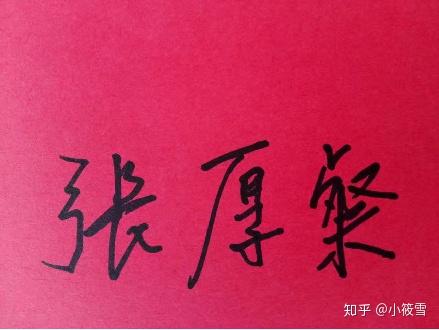 張厚粲
知乎 @小筱雪